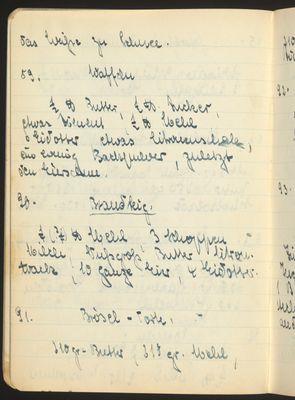 das Weiße zu Schnee.
89. Waffeln
¼ ℔ Butter, ¼ ℔ Zucker,
etwas ¼ ℔ Mehl
6 Eidotter etwas Citronenschale,
ein wenig Backpulver, zuletzt
den Eischnee.
90.
½ (¾) ℔ Mehl 3 Schoppen
Milch, Nußgroß Butter Citron-
10 ganze Eier, 4 Eidotter.
91. Brösel - Torte.
310 gr. Butter, 315 gr. Mehl,
92.
93.